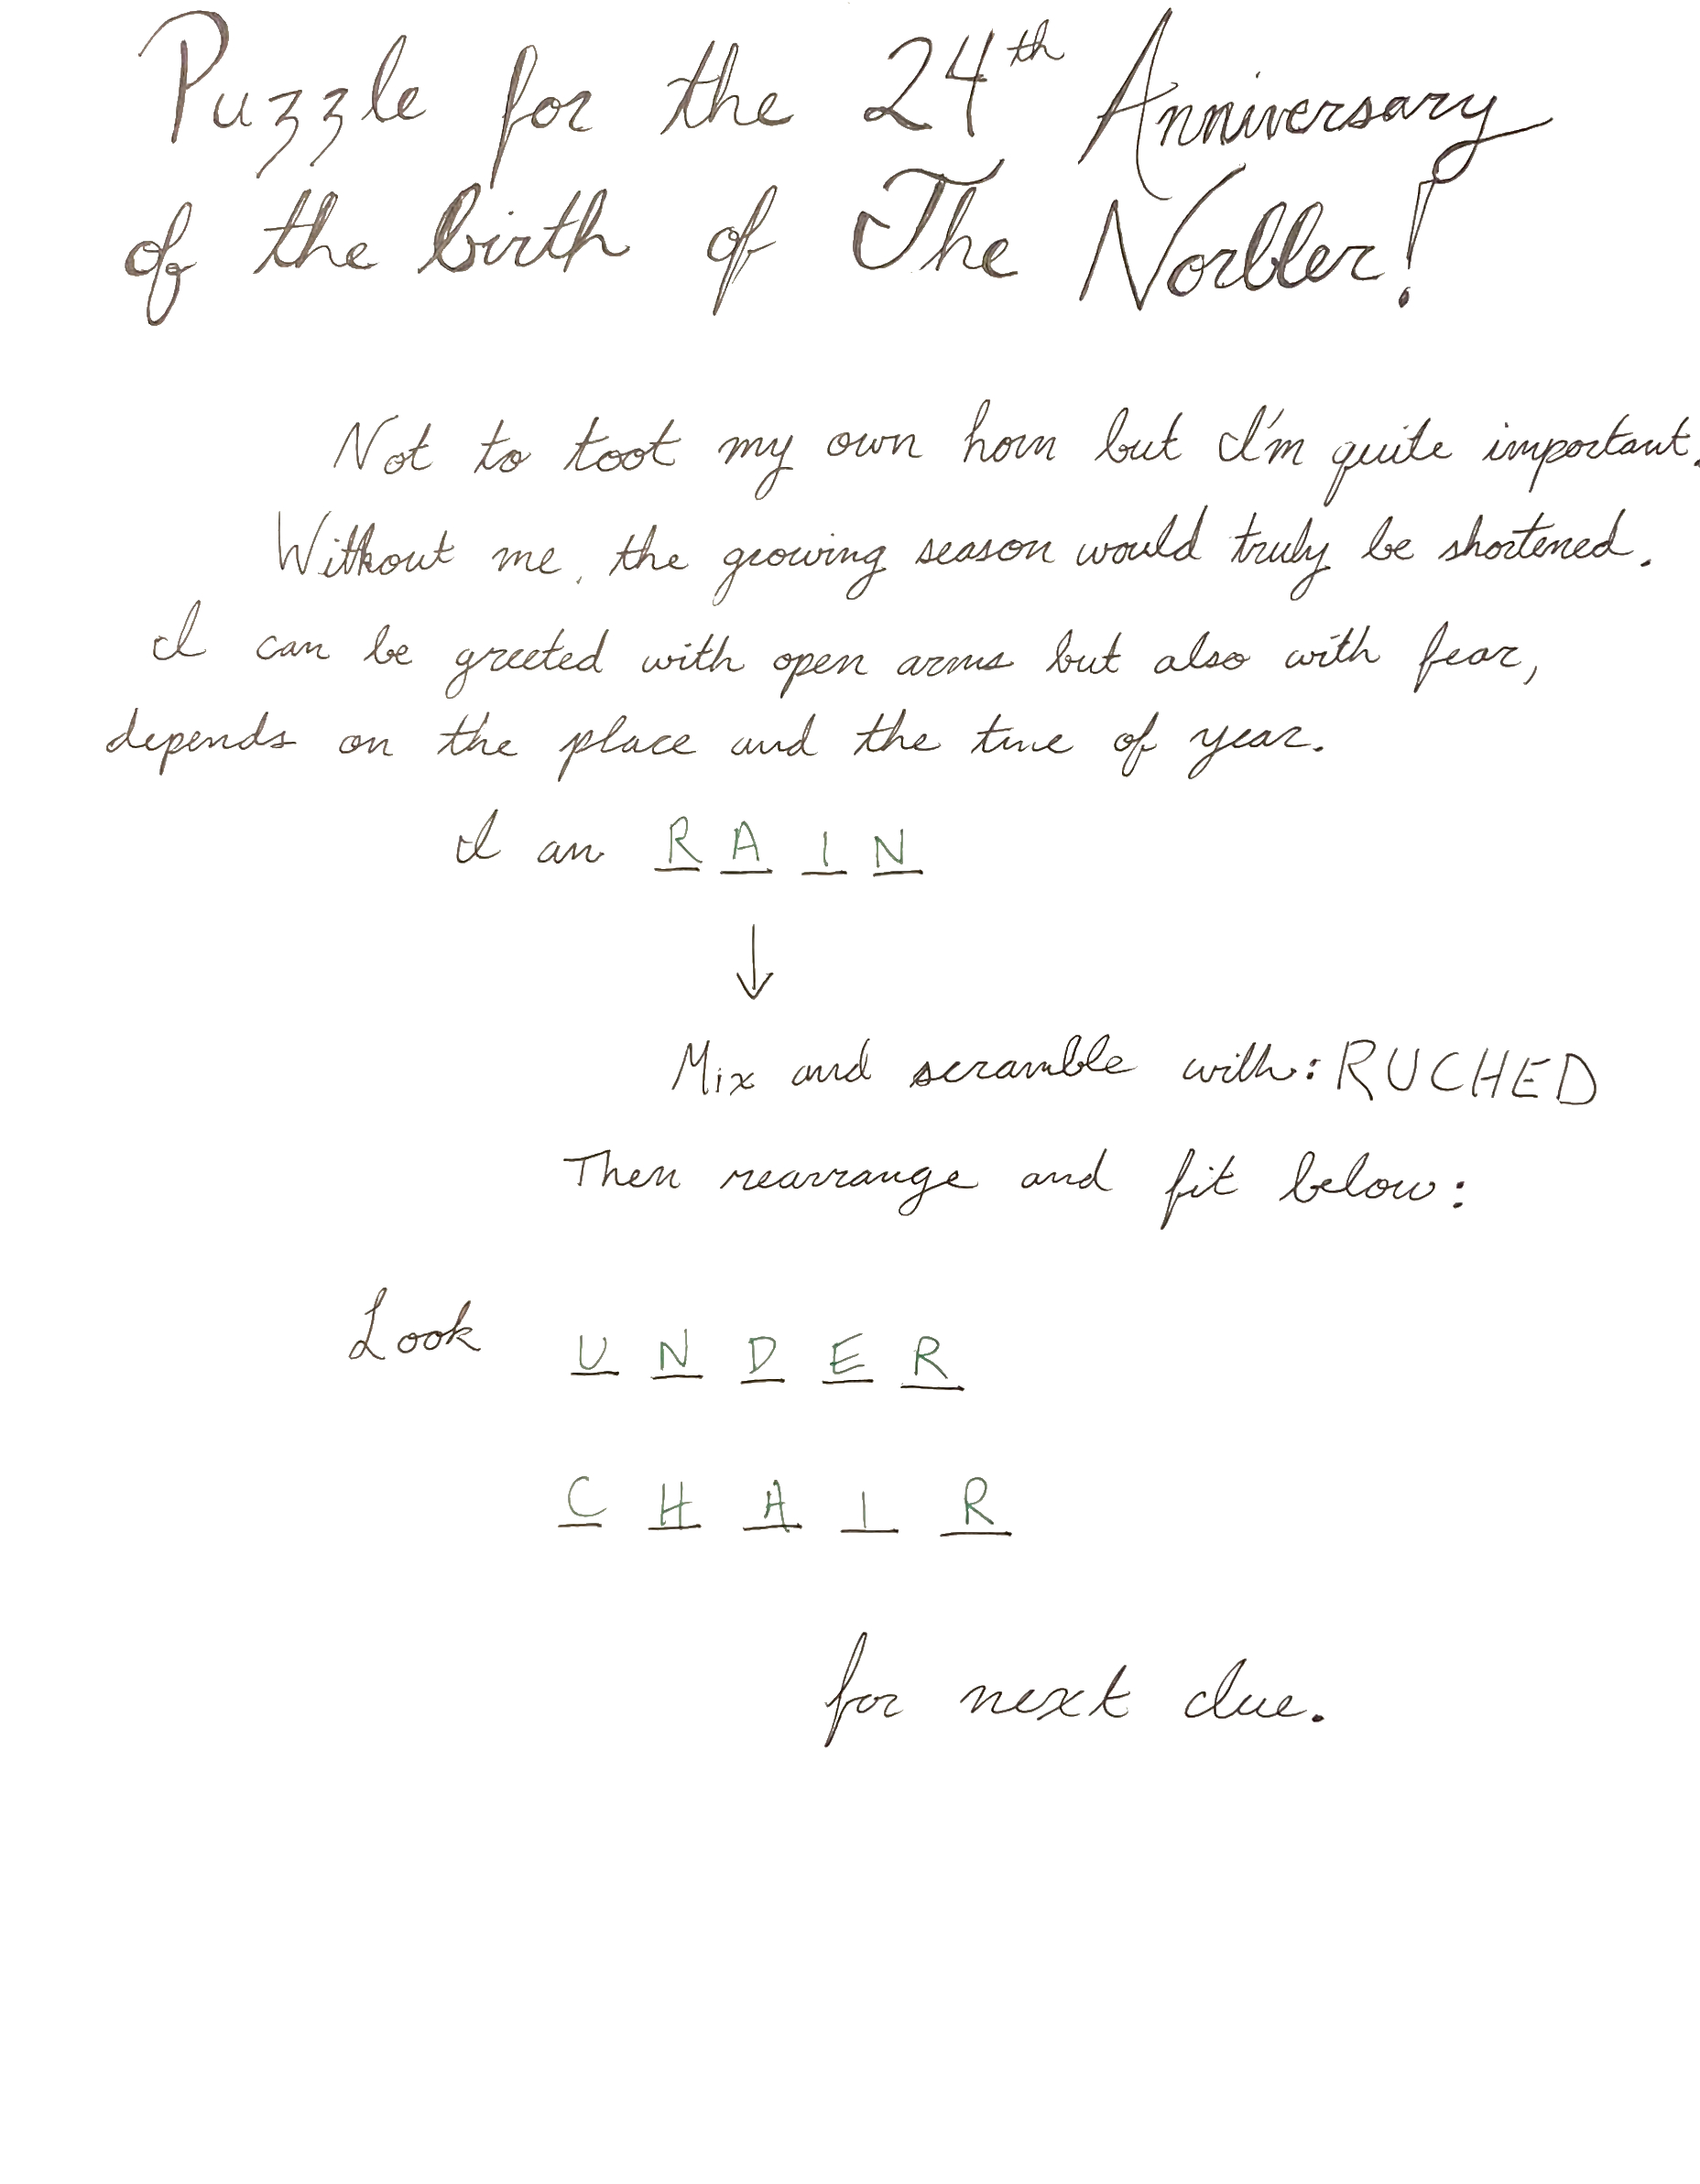 Puzzle for the 24th Anniversary
of the birth of The Norbler!
Not to toot my own horn but I'm quite important.
Without me, the growing season would truly be shortened.
I can be greeted with open arms but also with fear,
depends on the place and the time of year.
I am R A I N
↓
Mix and scramble with: RUCHED
Then rearrange and fit below:
Look U N D E R
C H A I R
for next clue.